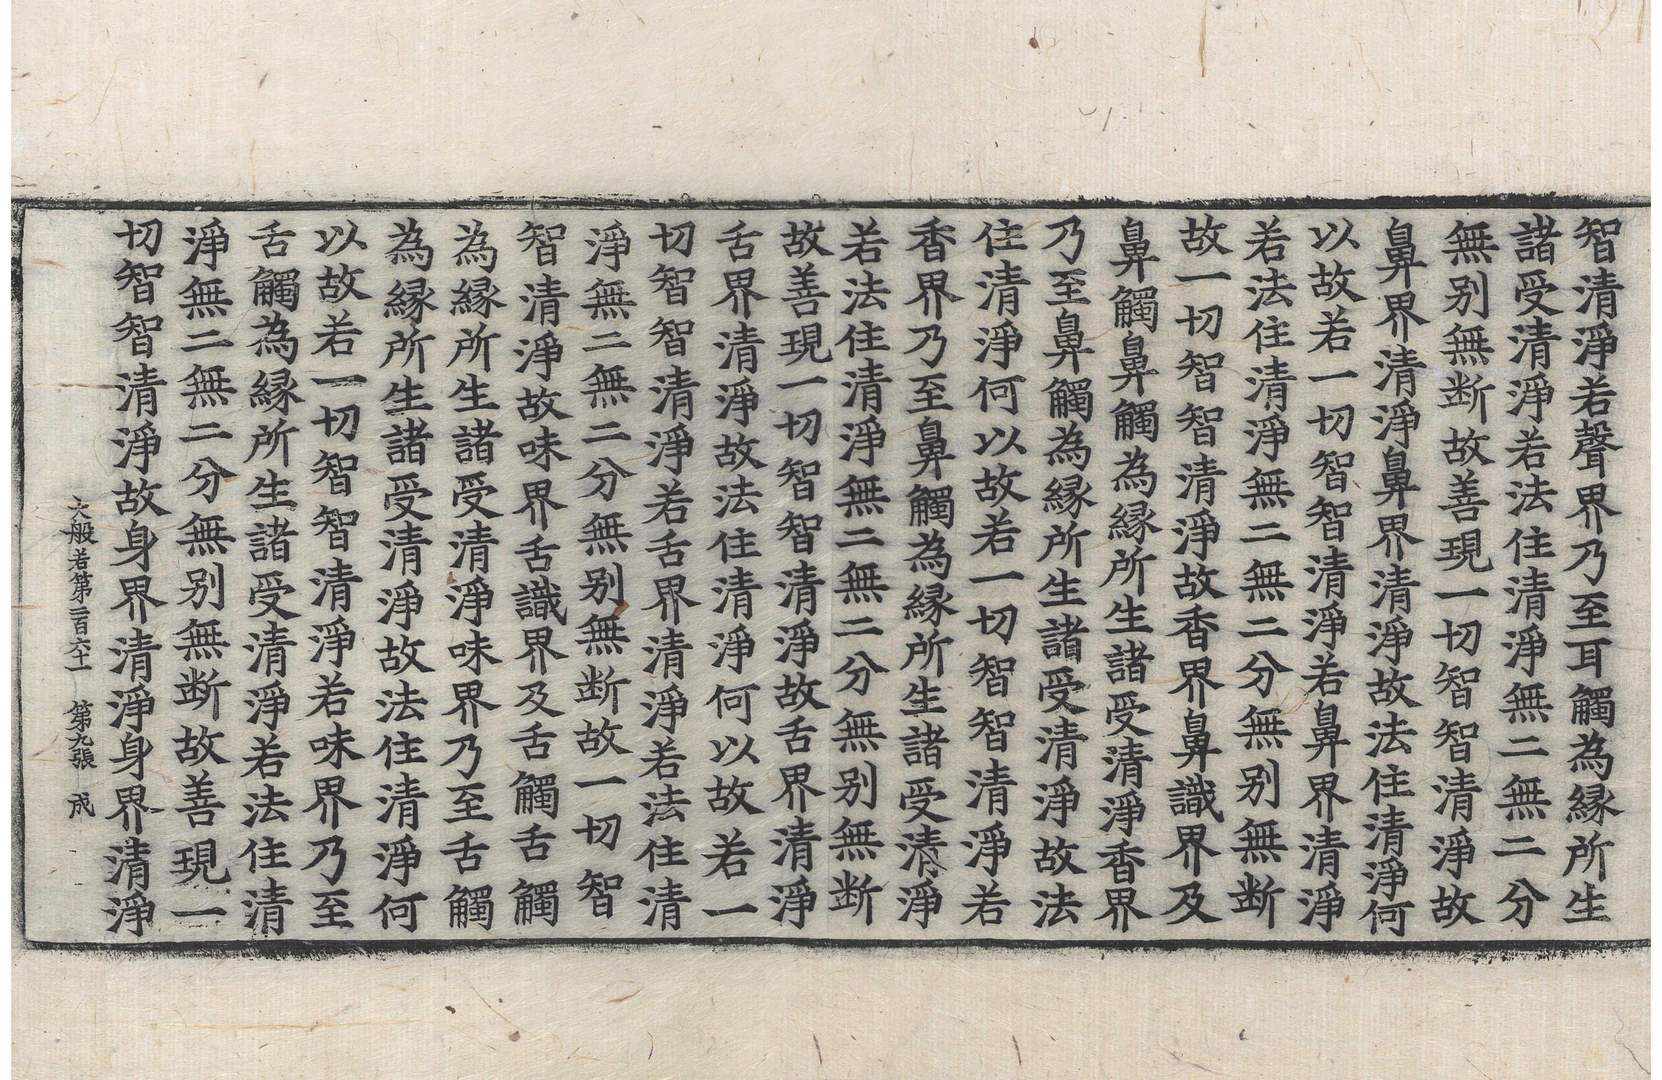 智清淨若聲界乃至耳觸為緣所生
諸受清淨若法住清淨無二無二分
無别無断故善現一切智智清淨故
鼻界清淨鼻界清淨故法住清淨何
以故若一切智智清淨若鼻界清淨
若法住清淨無二無二分無别無断
故一切智智清淨故香界鼻識界及
鼻觸鼻觸為緣所生諸受清淨香界
乃至鼻觸為緣所生諸受清淨故法
住清淨何以故若一切智智清淨若
香界乃至鼻觸為緣所生諸受清淨
若法住清淨無二無二分無别無断
故善現一切智智清淨故舌界清淨
舌界清淨故法住清淨何以故若一
切智智清淨若舌界清淨若法住清
淨無二無二分無别無断故一切智
智清淨故味界舌識界及舌觸舌觸
為緣所生諸受清淨味界乃至舌觸
為緣所生諸受清淨故法住清淨何
以故若一切智智清淨若味界乃至
舌觸為緣所生諸受清淨若法住清
淨無二無二分無别無断故善現一
切智智清淨故身界清淨身界清淨
大般若第二百六十一 第九張 成